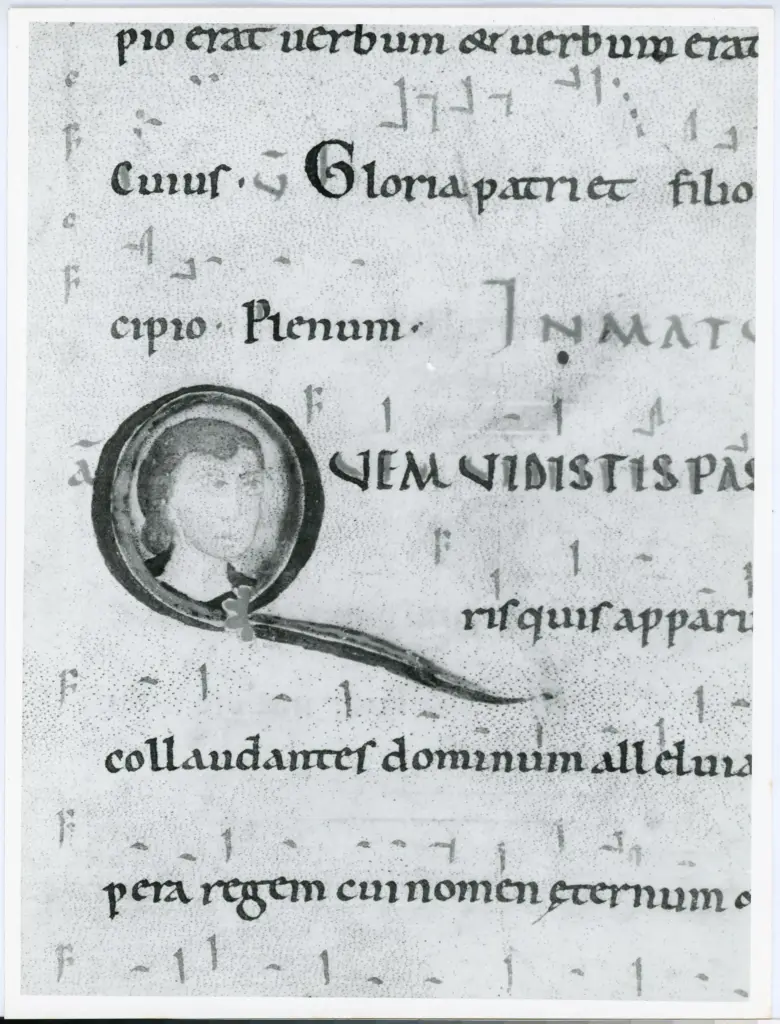 pio erat uerbum & uerbum erat
Cuius · V Gloria patri et filio
cipio · Plenum · IN MAT
QVEM VIDISTIS PAS
ris quis apparu
collaudantes dominum alleluia
pera regem cui nomen ęternum